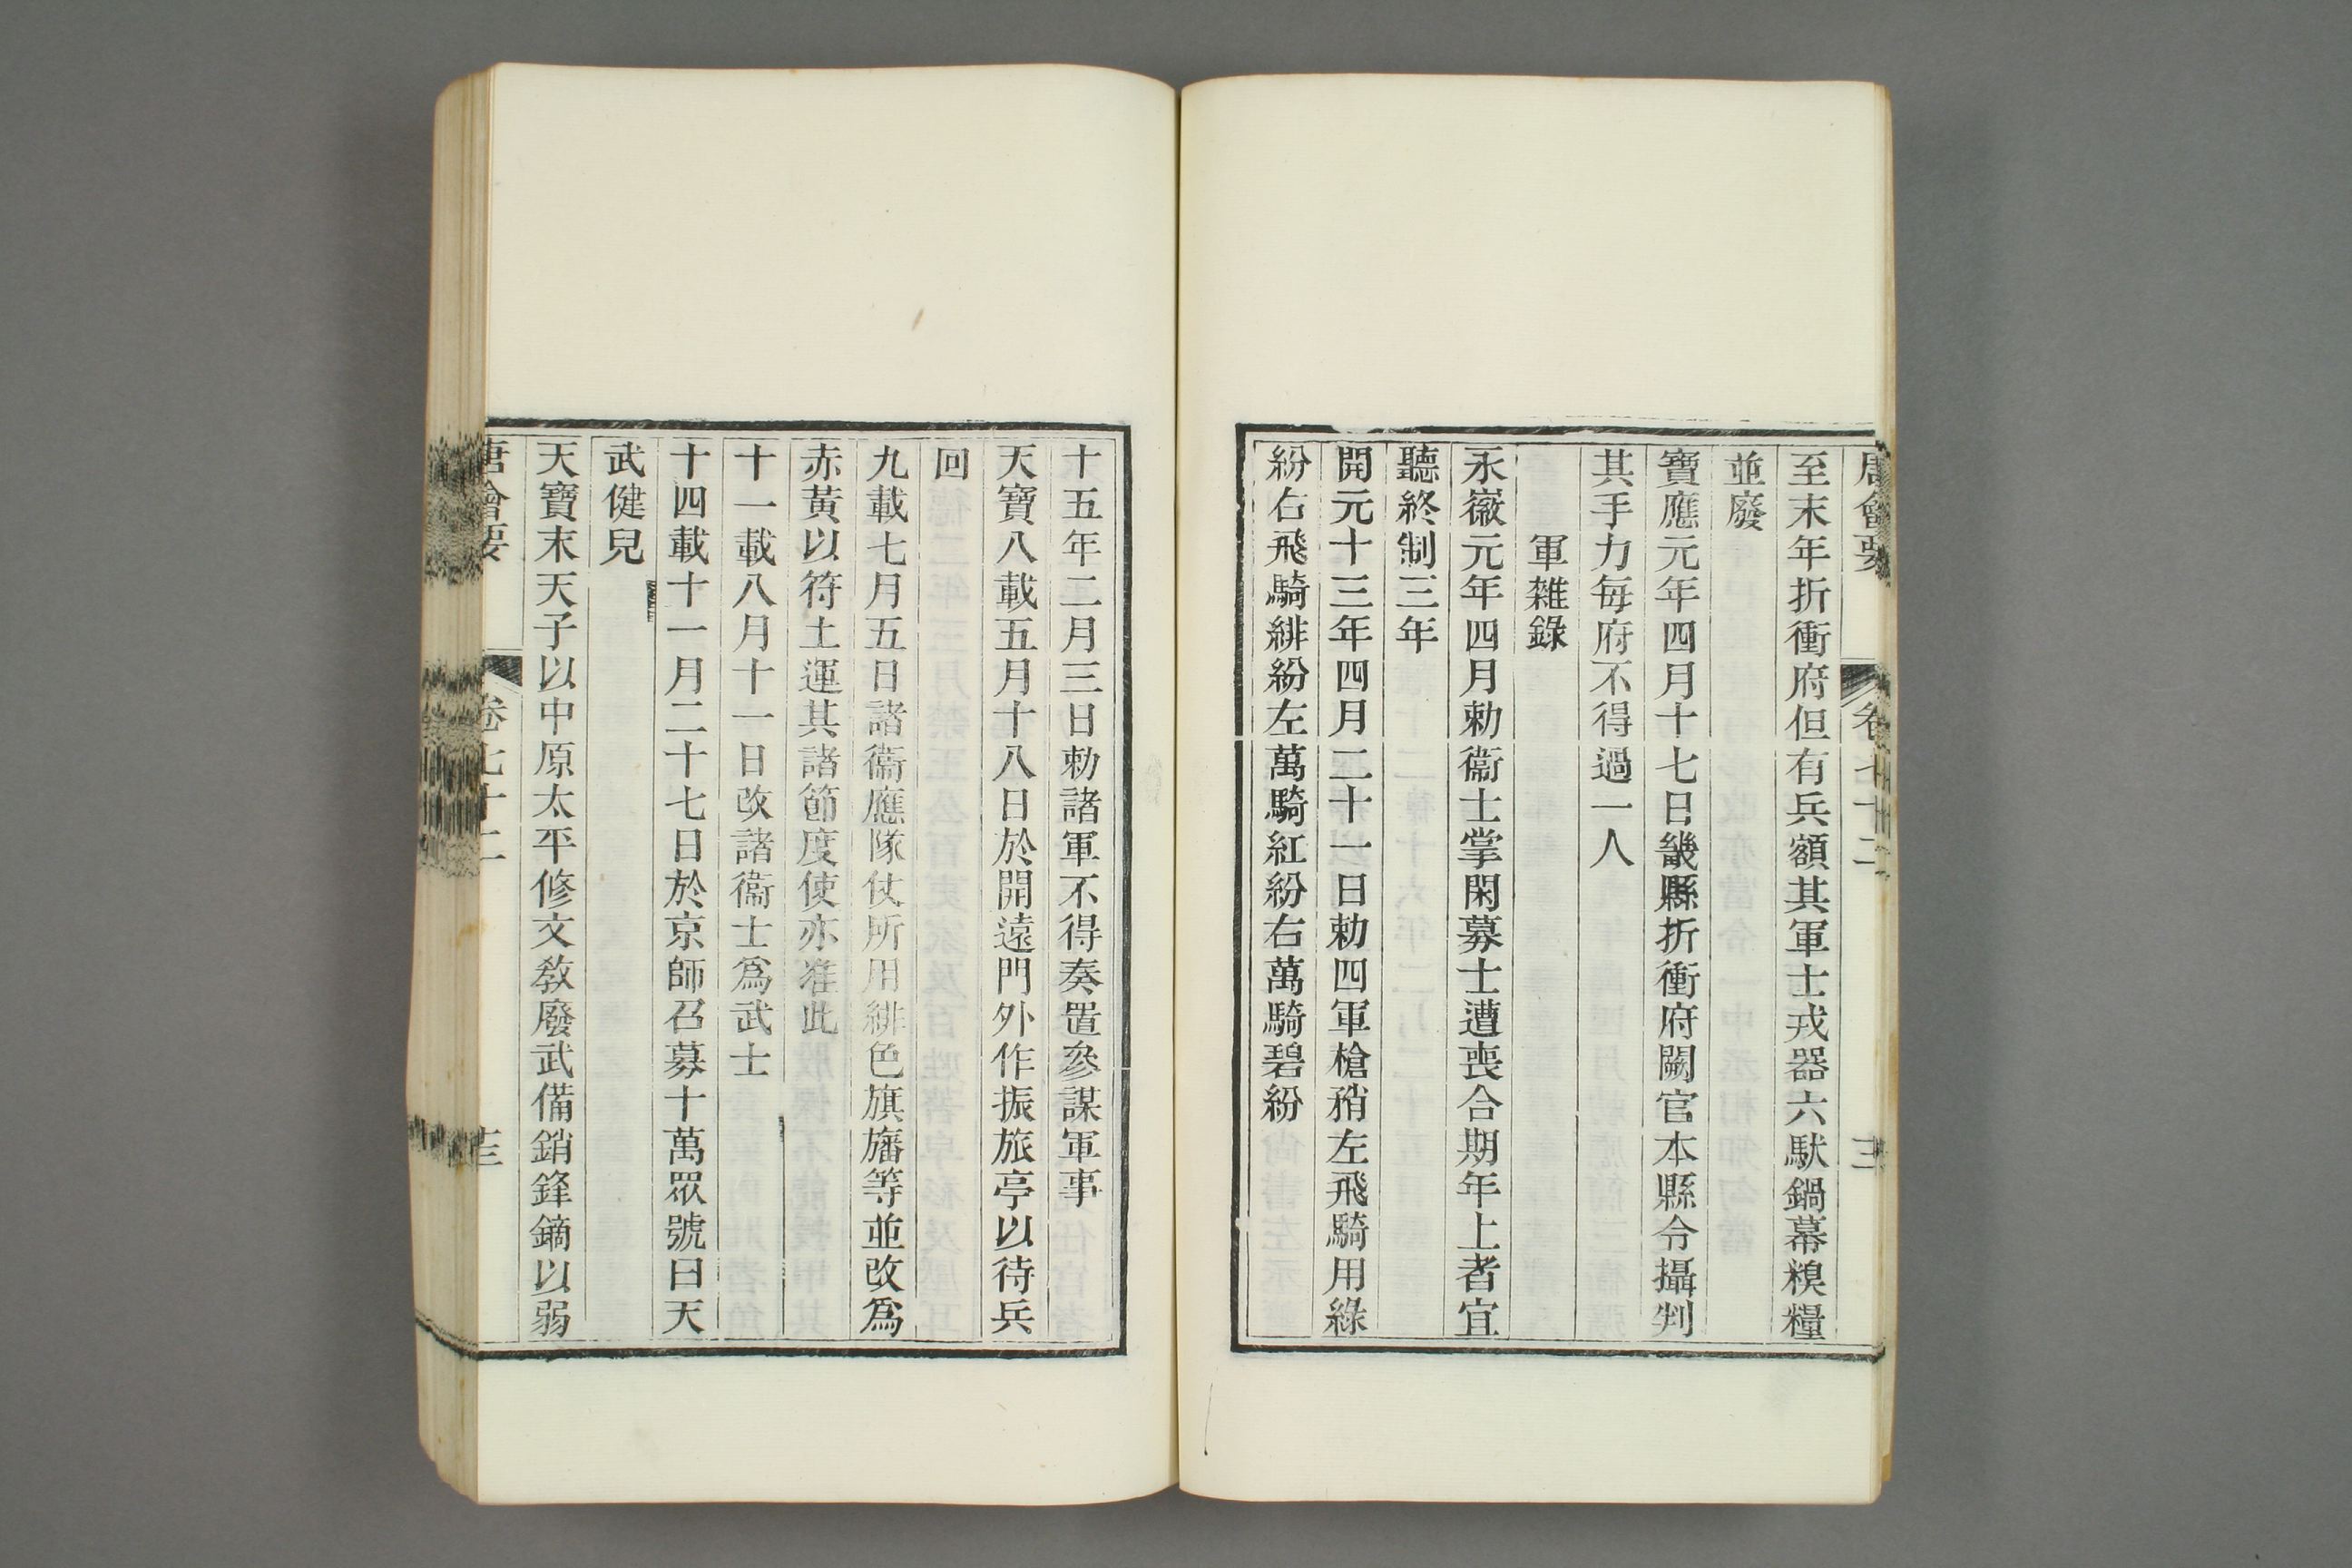 唐會要 卷七十二 三
至末年折衝府但有兵額其軍士戎器六馱鍋幕糗糧
並廢
寶應元年四月十七日畿縣折衝府闕官本縣令攝判
其手力每府不得過一人
軍雜錄
永徽元年四月勅衞士掌閑募士遭喪合期年上者宜
聽終制三年
開元十三年四月二十一日勅四軍槍矟左飛騎用綠
紛右飛騎緋紛左萬騎紅紛右萬騎碧紛
十五年二月三日勅諸軍不得奏置參謀軍事
天寶八載五月十八日於開遠門外作振旅亭以待兵
回
九載七月五日諸衞應隊仗所用緋色旗旛等並改爲
赤黃以符土運其諸節度使亦准此
十一載八月十一日改諸衞士爲武士
十四載十一月二十七日於京師召募十萬眾號曰天
武健兒
天寶末天子以中原太平修文敎廢武備銷鋒鏑以弱
唐會要 卷七十二